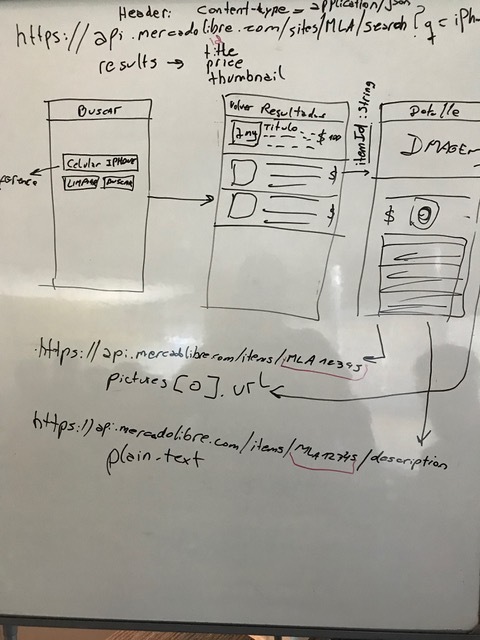 Header: content-type = application/json?
https://api.mercadolibre.com/sites/MLA/search?q=iPh
results → title
price
thumbnail
Buscar
Celular IPHONE
LIMPIAR
BUSCAR
Volver Resultados
Img
Titulo
$
$
$
itemId: String
Detalle
IMAGEN
$
https://api.mercadolibre.com/items/MLA12345
pictures[0].url
https://api.mercadolibre.com/items/MLA12345/description
plain-text